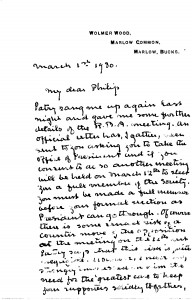 WOLMER WOOD,
MARLOW COMMON,
MARLOW, BUCKS.
March 1st 1930.
My dear Philip
rang me up again last
night and gave me some further
details of the R.B.A. meeting. An
official letter has, I gather, been
sent to you asking you to take the
office of President and if you
consent to do so another meeting
will be held on March 12th to elect
you a full member of the Society.
You must be made a full member
before your formal election as
President can go through. Of course
there is some risk of a
counter move by the opposition
at the meeting on the
says that this is not
need for the greatest care to keep
your supporters solidly together.